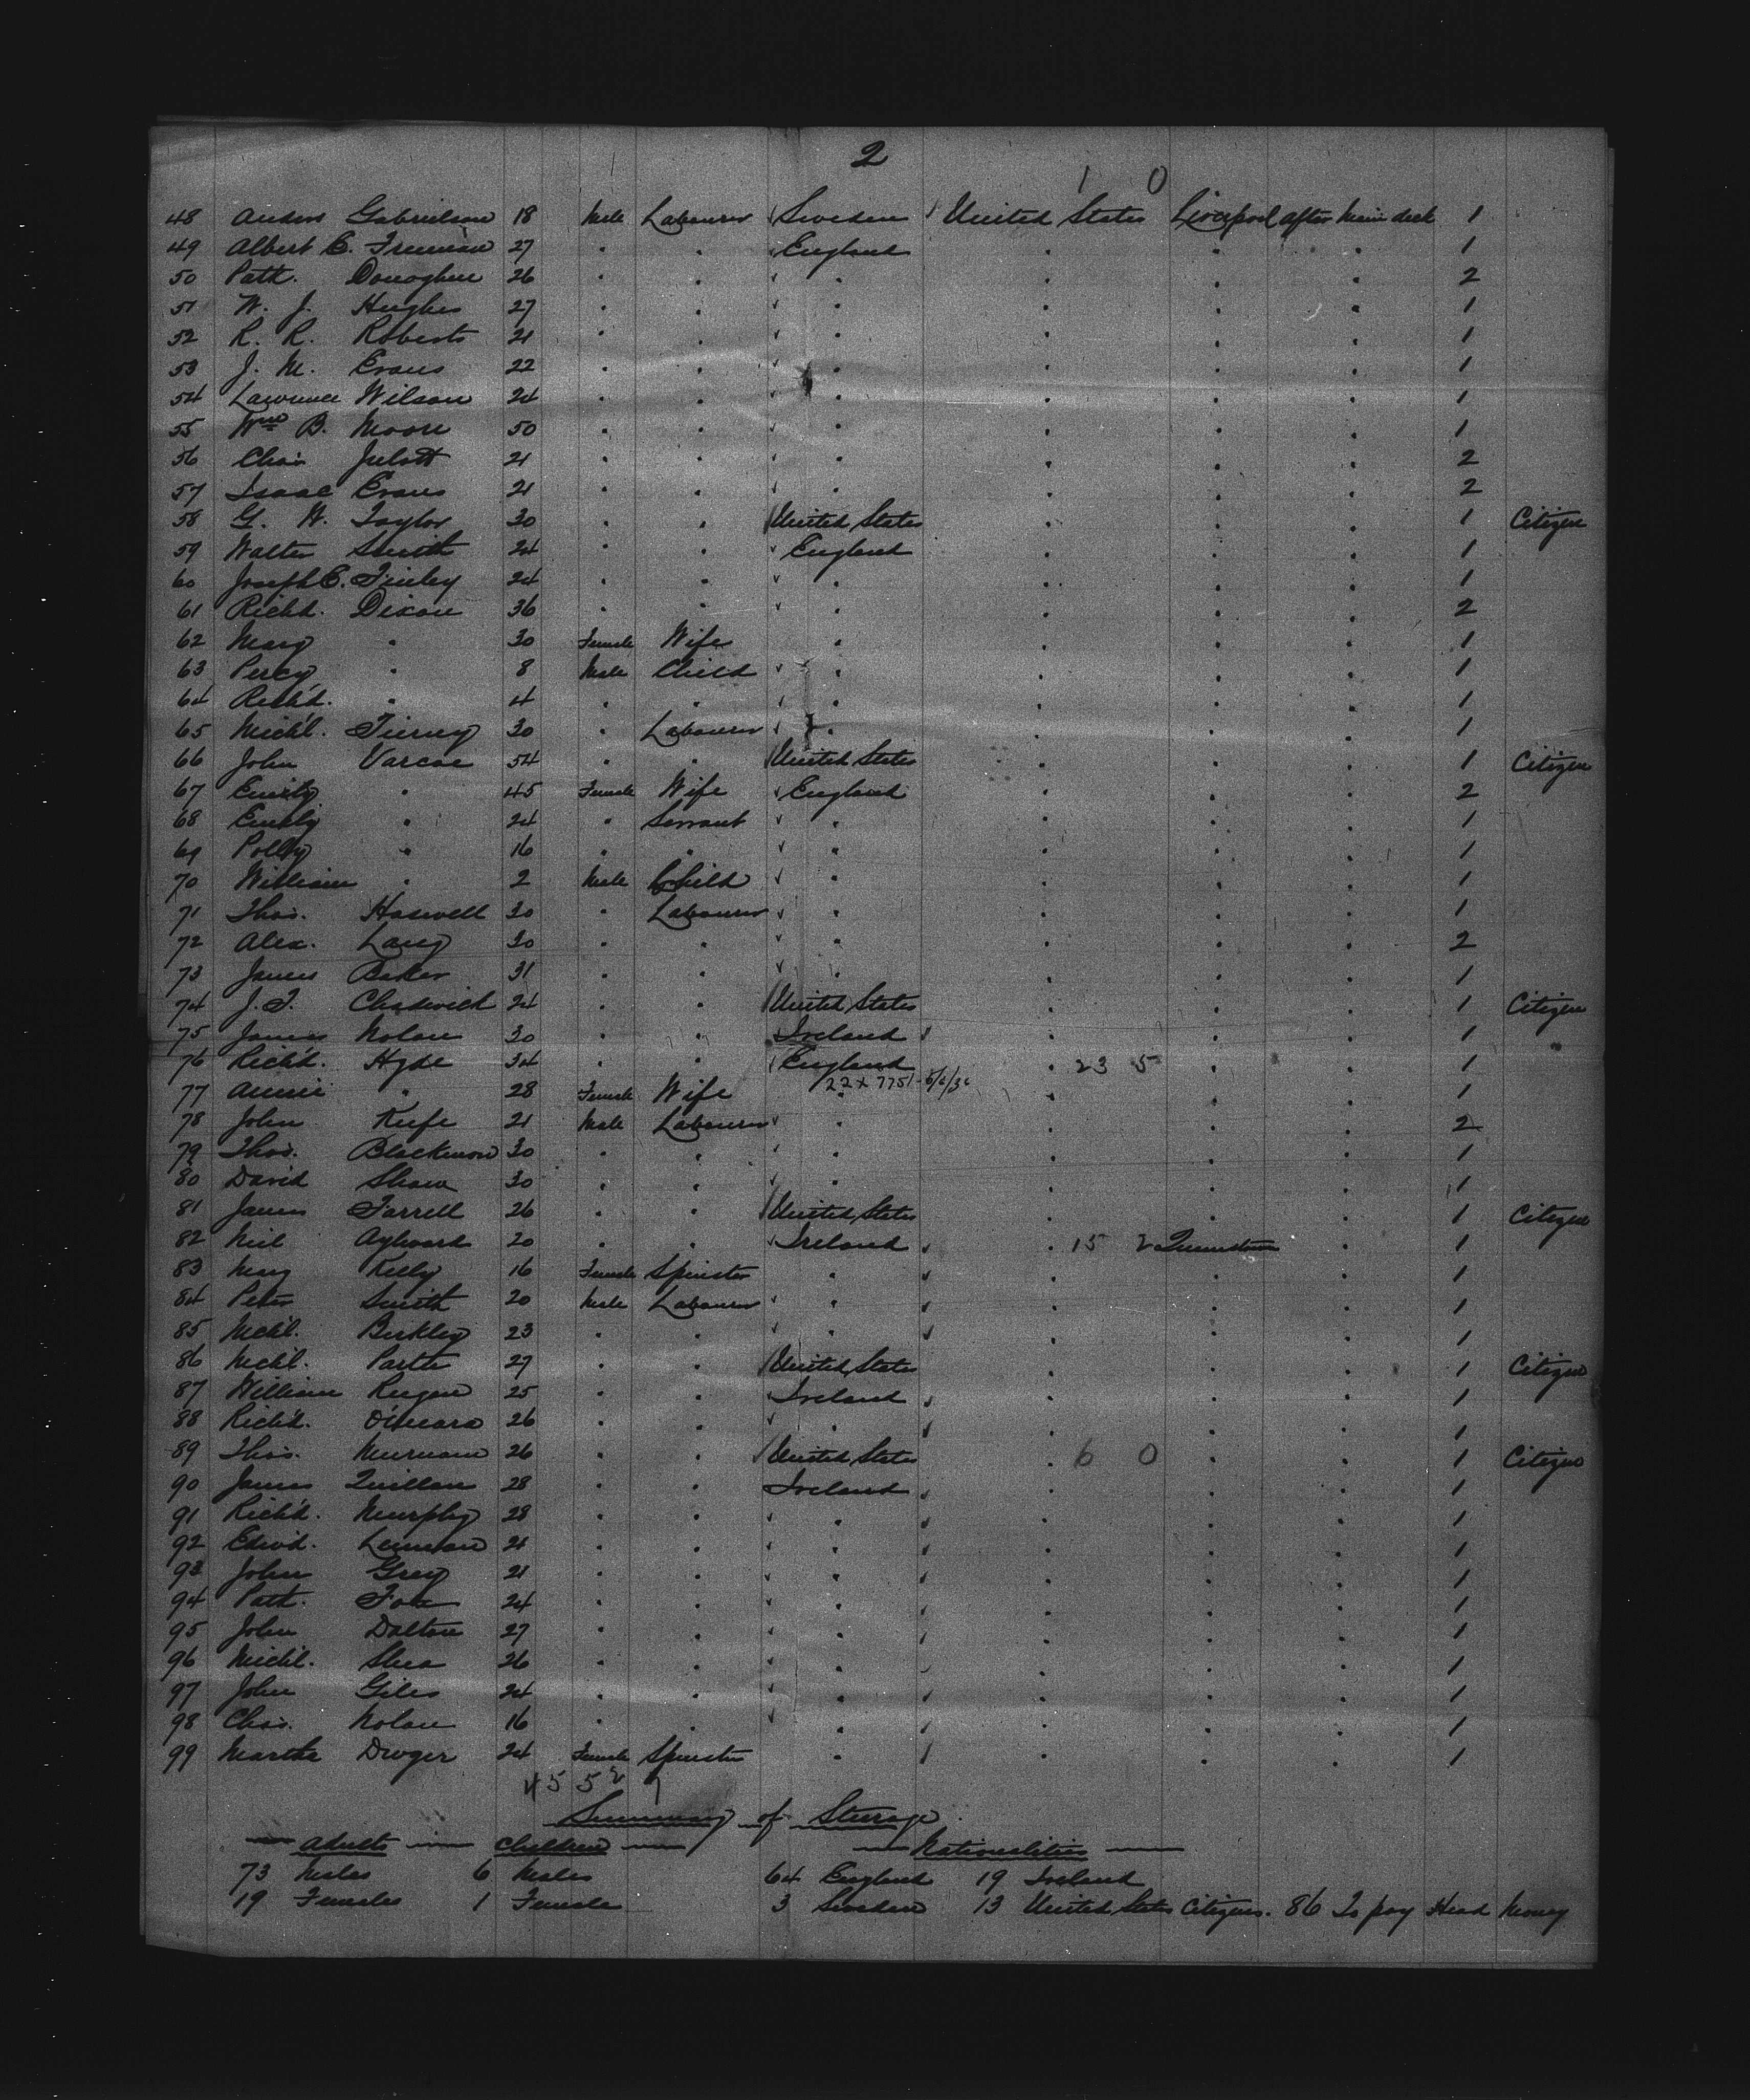 2
1 0
48 Anders Gabrielson 18 Male Labourer Sweden United States Liverpool after main deck 1
49 Albert E. Freeman 27 " " England " " " 1
50 Patk. Donoghue 26 " " " " " " 2
51 W. J. Hughes 27 " " " " " " 1
52 R. R. Roberts 21 " " " " " " 1
53 J. M. Evans 22 " " " " " " 1
54 Lawrence Wilson 24 " " " " " " 1
55 Wm B. Moore 50 " " " " " " 1
56 Chas 21 " " " " " " 2
57 Isaac Evans 21 " " " " " " 2
58 G. H. Taylor 30 " " United States " " " 1 Citizen
59 Walter Smith 24 " " England " " " 1
60 Joseph E. Finley 24 " " " " " " 1
61 Richd. Dixon 36 " " " " " " 2
62 Mary " 30 Female Wife " " " " 1
63 Percy " 8 Male Child " " " " 1
64 Richd. " 4 " " " " " " 1
65 Michl. Tierney 30 " Labourer " " " " 1
66 John Varcoe 54 " " United States " " " 1 Citizen
67 Emily " 45 Female Wife England " " " 2
68 Emily " 24 " Servant " " " " 1
69 Polly " 16 " " " " " " 1
70 William " 2 Male Child " " " " 1
71 Thos. Haswell 30 " Labourer " " " " 1
72 Alex. Lang 30 " " " " " " 2
73 James Baker 31 " " " " " " 1
74 J. T. Chadwick 24 " " United States " " " 1 Citizen
75 James Nolan 30 " " Ireland " " " 1
76 Richd. Hyde 34 " " England " 23 5 " " 1
77 Annie " 28 Female Wife " 22 x 7751 - " " " 1
78 John Keefe 21 Male Labourer " " " " 2
79 Thos. Blackmore 30 " " " " " " 1
80 David Shaw 30 " " " " " " 1
81 James Farrell 26 " " United States " " " 1 Citizen
82 Neil Aylward 20 " " Ireland " 15 2 Queenstown " 1
83 Mary Kelly 16 Female Spinster " " " " 1
84 Peter Smith 20 Male Labourer " " " " 1
85 Michl. Berkley 23 " " " " " " 1
86 Michl. 27 " " United States " " " 1 Citizen
87 William Regan 25 " " Ireland " " " 1
88 Richd. O'Meara 26 " " " " " " 1
89 Thos. Murnane 26 " " United States " 6 0 " " 1 Citizen
90 James Quillan 28 " " Ireland " " " 1
91 Richd. Murphy 28 " " " " " " 1
92 Edwd. Lennon 21 " " " " " " 1
93 John Grey 21 " " " " " " 1
94 Patk. Fox 24 " " " " " " 1
95 John Dalton 27 " " " " " " 1
96 Michl. Shea 26 " " " " " " 1
97 John Giles 24 " " " " " " 1
98 Chas. Nolan 16 " " " " " " 1
99 Martha Dwyer 24 Female Spinster " " " " 1
45 5 2 7
Summary of Steerage
Adults Children Nationalities
73 Males 6 Males 64 England 19 Ireland
19 Females 1 Female 3 Sweden 13 United States Citizens. 86 To pay Head Money